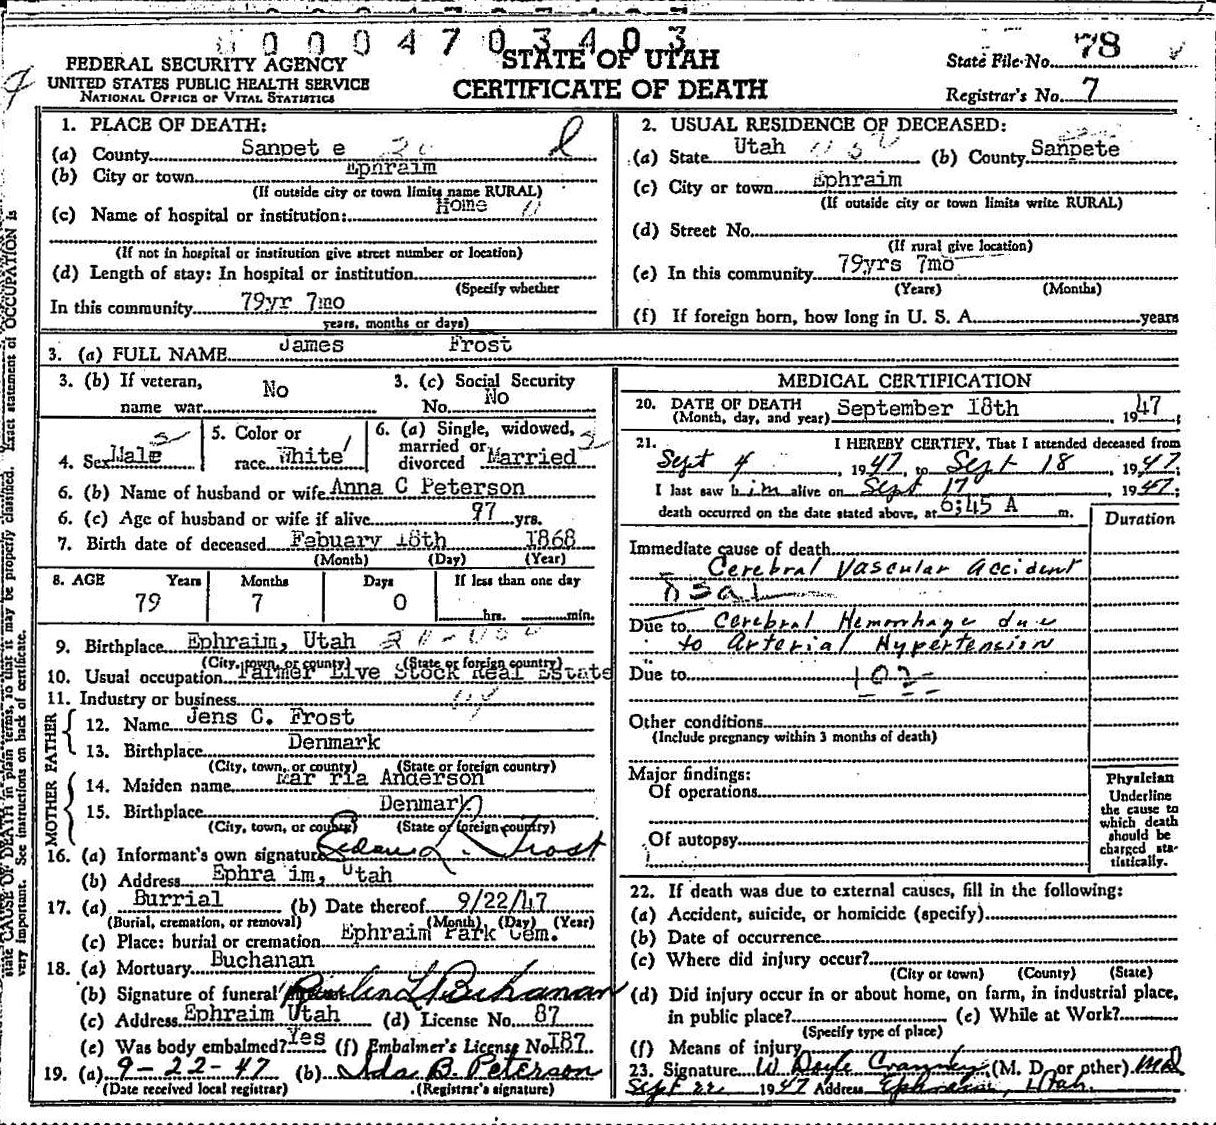 0 0 0 4 7 0 3 4 0 3
FEDERAL SECURITY AGENCY
UNITED STATES PUBLIC HEALTH SERVICE
NATIONAL OFFICE OF VITAL STATISTICS
STATE OF UTAH
CERTIFICATE OF DEATH
State File No. 78
Registrar's No. 7
1. PLACE OF DEATH:
(a) County Sanpet e
(b) City or town Ephraim
(If outside city or town limits name RURAL)
(c) Name of hospital or institution: Home
(If not in hospital or institution give street number or location)
(d) Length of stay: In hospital or institution
(Specify whether
In this community 79yr 7mo
years, months or days)
2. USUAL RESIDENCE OF DECEASED:
(a) State Utah (b) County Sanpete
(c) City or town Ephraim
(If outside city or town limits write RURAL)
(d) Street No.
(If rural give location)
(e) In this community 79yrs 7mo
(Years) (Months)
(f) If foreign born, how long in U. S. A. years
3. (a) FULL NAME James Frost
3. (b) If veteran, name war No
3. (c) Social Security No. No
4. Sex Male
5. Color or race White
6. (a) Single, widowed, married or divorced Married
6. (b) Name of husband or wife Anna C Peterson
6. (c) Age of husband or wife if alive 77 yrs.
7. Birth date of deceased Febuary 18th 1868
(Month) (Day) (Year)
8. AGE Years Months Days If less than one day
79 7 0 hrs. min.
9. Birthplace Ephraim, Utah
(City, town, or county) (State or foreign country)
10. Usual occupation Farmer Live Stock Real Estate
11. Industry or business
FATHER
12. Name Jens C. Frost
13. Birthplace Denmark
(City, town, or county) (State or foreign country)
MOTHER
14. Maiden name Mar ria Anderson
15. Birthplace Denmark
(City, town, or county) (State or foreign country)
16. (a) Informant's own signature L. Frost
(b) Address Ephra im, Utah
17. (a) Burrial (b) Date thereof 9/22/47
(Burial, cremation, or removal) (Month) (Day) (Year)
(c) Place: burial or cremation Ephraim Park Cem.
18. (a) Mortuary Buchanan
(b) Signature of funeral Buchanan
(c) Address Ephraim Utah (d) License No. 87
(e) Was body embalmed? Yes (f) Embalmer's License No. 187
19. (a) 9-22-47 (b) Ida B. Peterson
(Date received local registrar) (Registrar's signature)
MEDICAL CERTIFICATION
20. DATE OF DEATH
(Month, day, and year) September 18th, 1947;
21. I HEREBY CERTIFY, That I attended deceased from
Sept 4, 1947, to Sept 18, 1947;
I last saw him alive on Sept 17 1947;
death occurred on the date stated above, at 6:45 A m.
Duration
Immediate cause of death
Cerebral Vascular Accident
Due to Cerebral Hemorrhage due
to Arterial Hypertension
Due to 102
Other conditions
(Include pregnancy within 3 months of death)
Major findings:
Of operations
Of autopsy
Physician
Underline
the cause to
which death
should be
charged sta-
tistically.
22. If death was due to external causes, fill in the following:
(a) Accident, suicide, or homicide (specify)
(b) Date of occurrence
(c) Where did injury occur?
(City or town) (County) (State)
(d) Did injury occur in or about home, on farm, in industrial place,
in public place? (e) While at Work?
(Specify type of place)
(f) Means of injury
23. Signature W Doyle Cranney (M. D. or other) MD
Sept 22 1947 Address Ephraim, Utah.
state CAUSE OF DEATH in plain terms, so that it may be properly classified. Exact statement of OCCUPATION is
very important. See instructions on back of certificate.